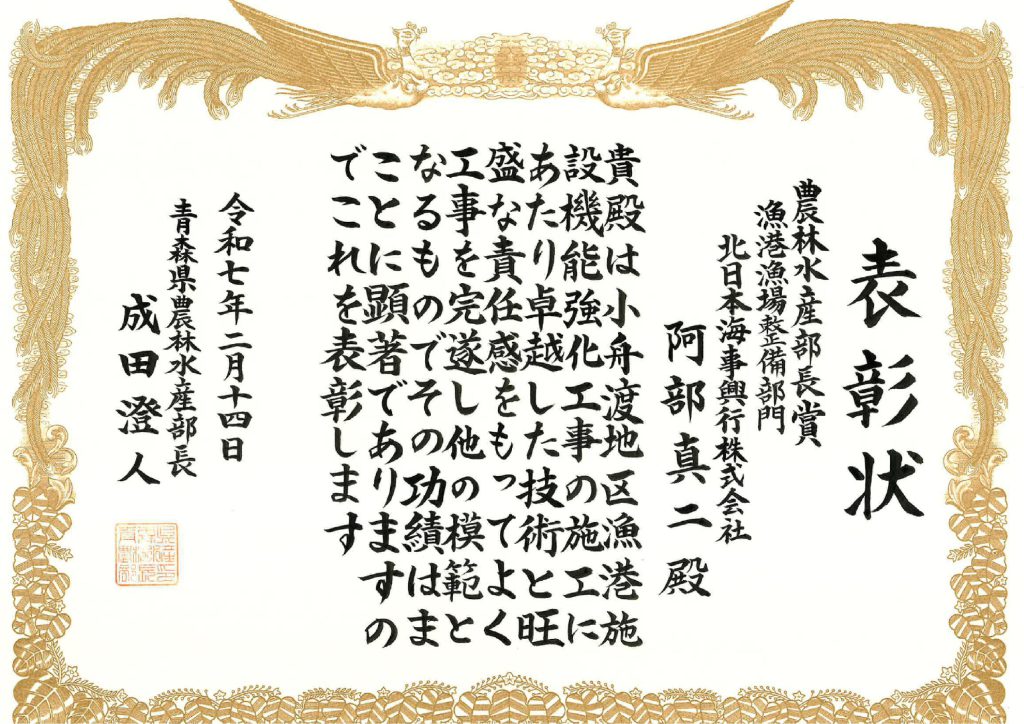 表彰状
農林水産部長賞
漁港漁場整備部門
北日本海事興行株式会社
阿部真二殿
貴殿は小舟渡地区漁港施
設機能強化工事の施工に
あたり卓越した技術と旺
盛な責任感をもってよく
工事を完遂し他の模範と
なるものでその功績はま
ことに顕著でありますの
でこれを表彰します
令和七年二月十四日
青森県農林水産部長
成田澄人